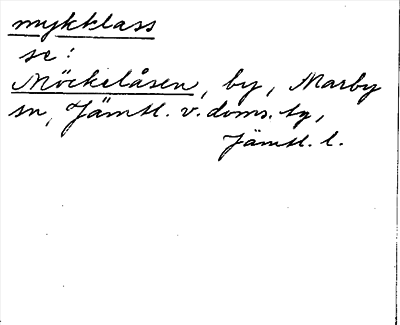 mykklass
se:
Möckelåsen, by, Marby
sn, Jämtl. v. doms. tg,
Jämtl. l.